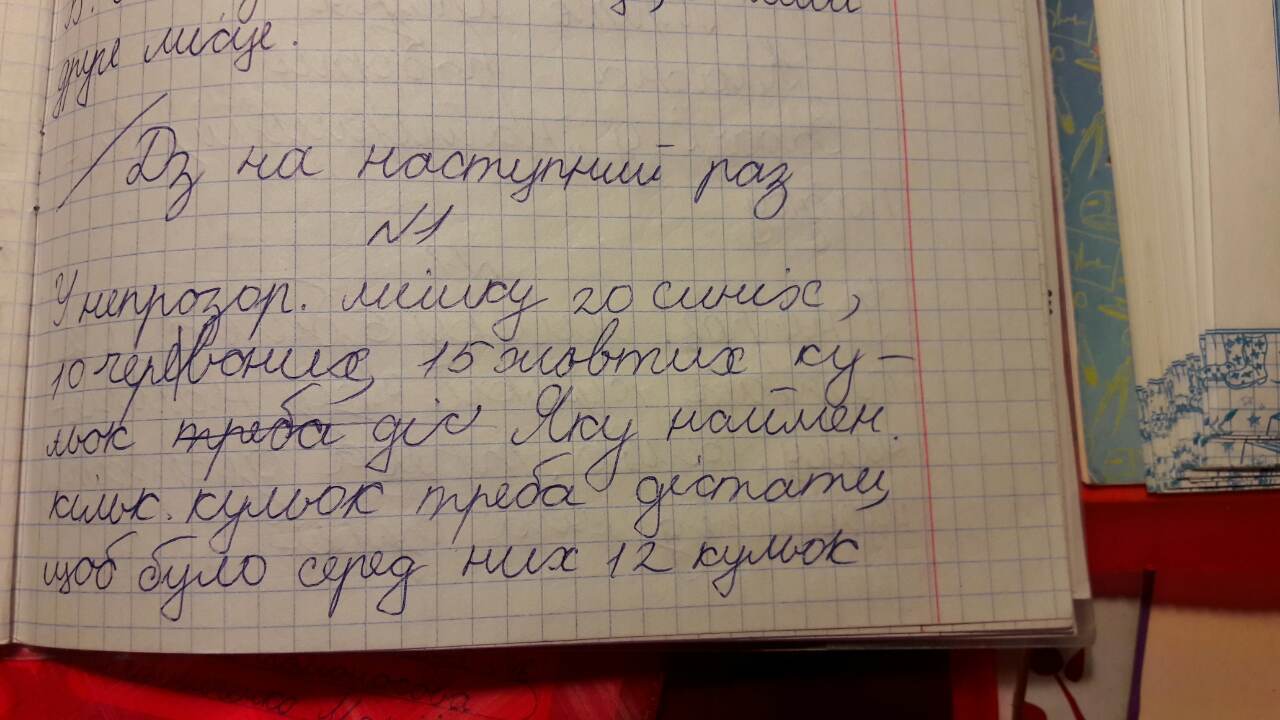 друге місце.
Дз на наступний раз
№1
У непрозор. мішку 20 синіх,
10 червоних, 15 жовтих ку-
льок треба діс Яку наймен.
кільк. кульок треба дістати,
щоб було серед них 12 кульок